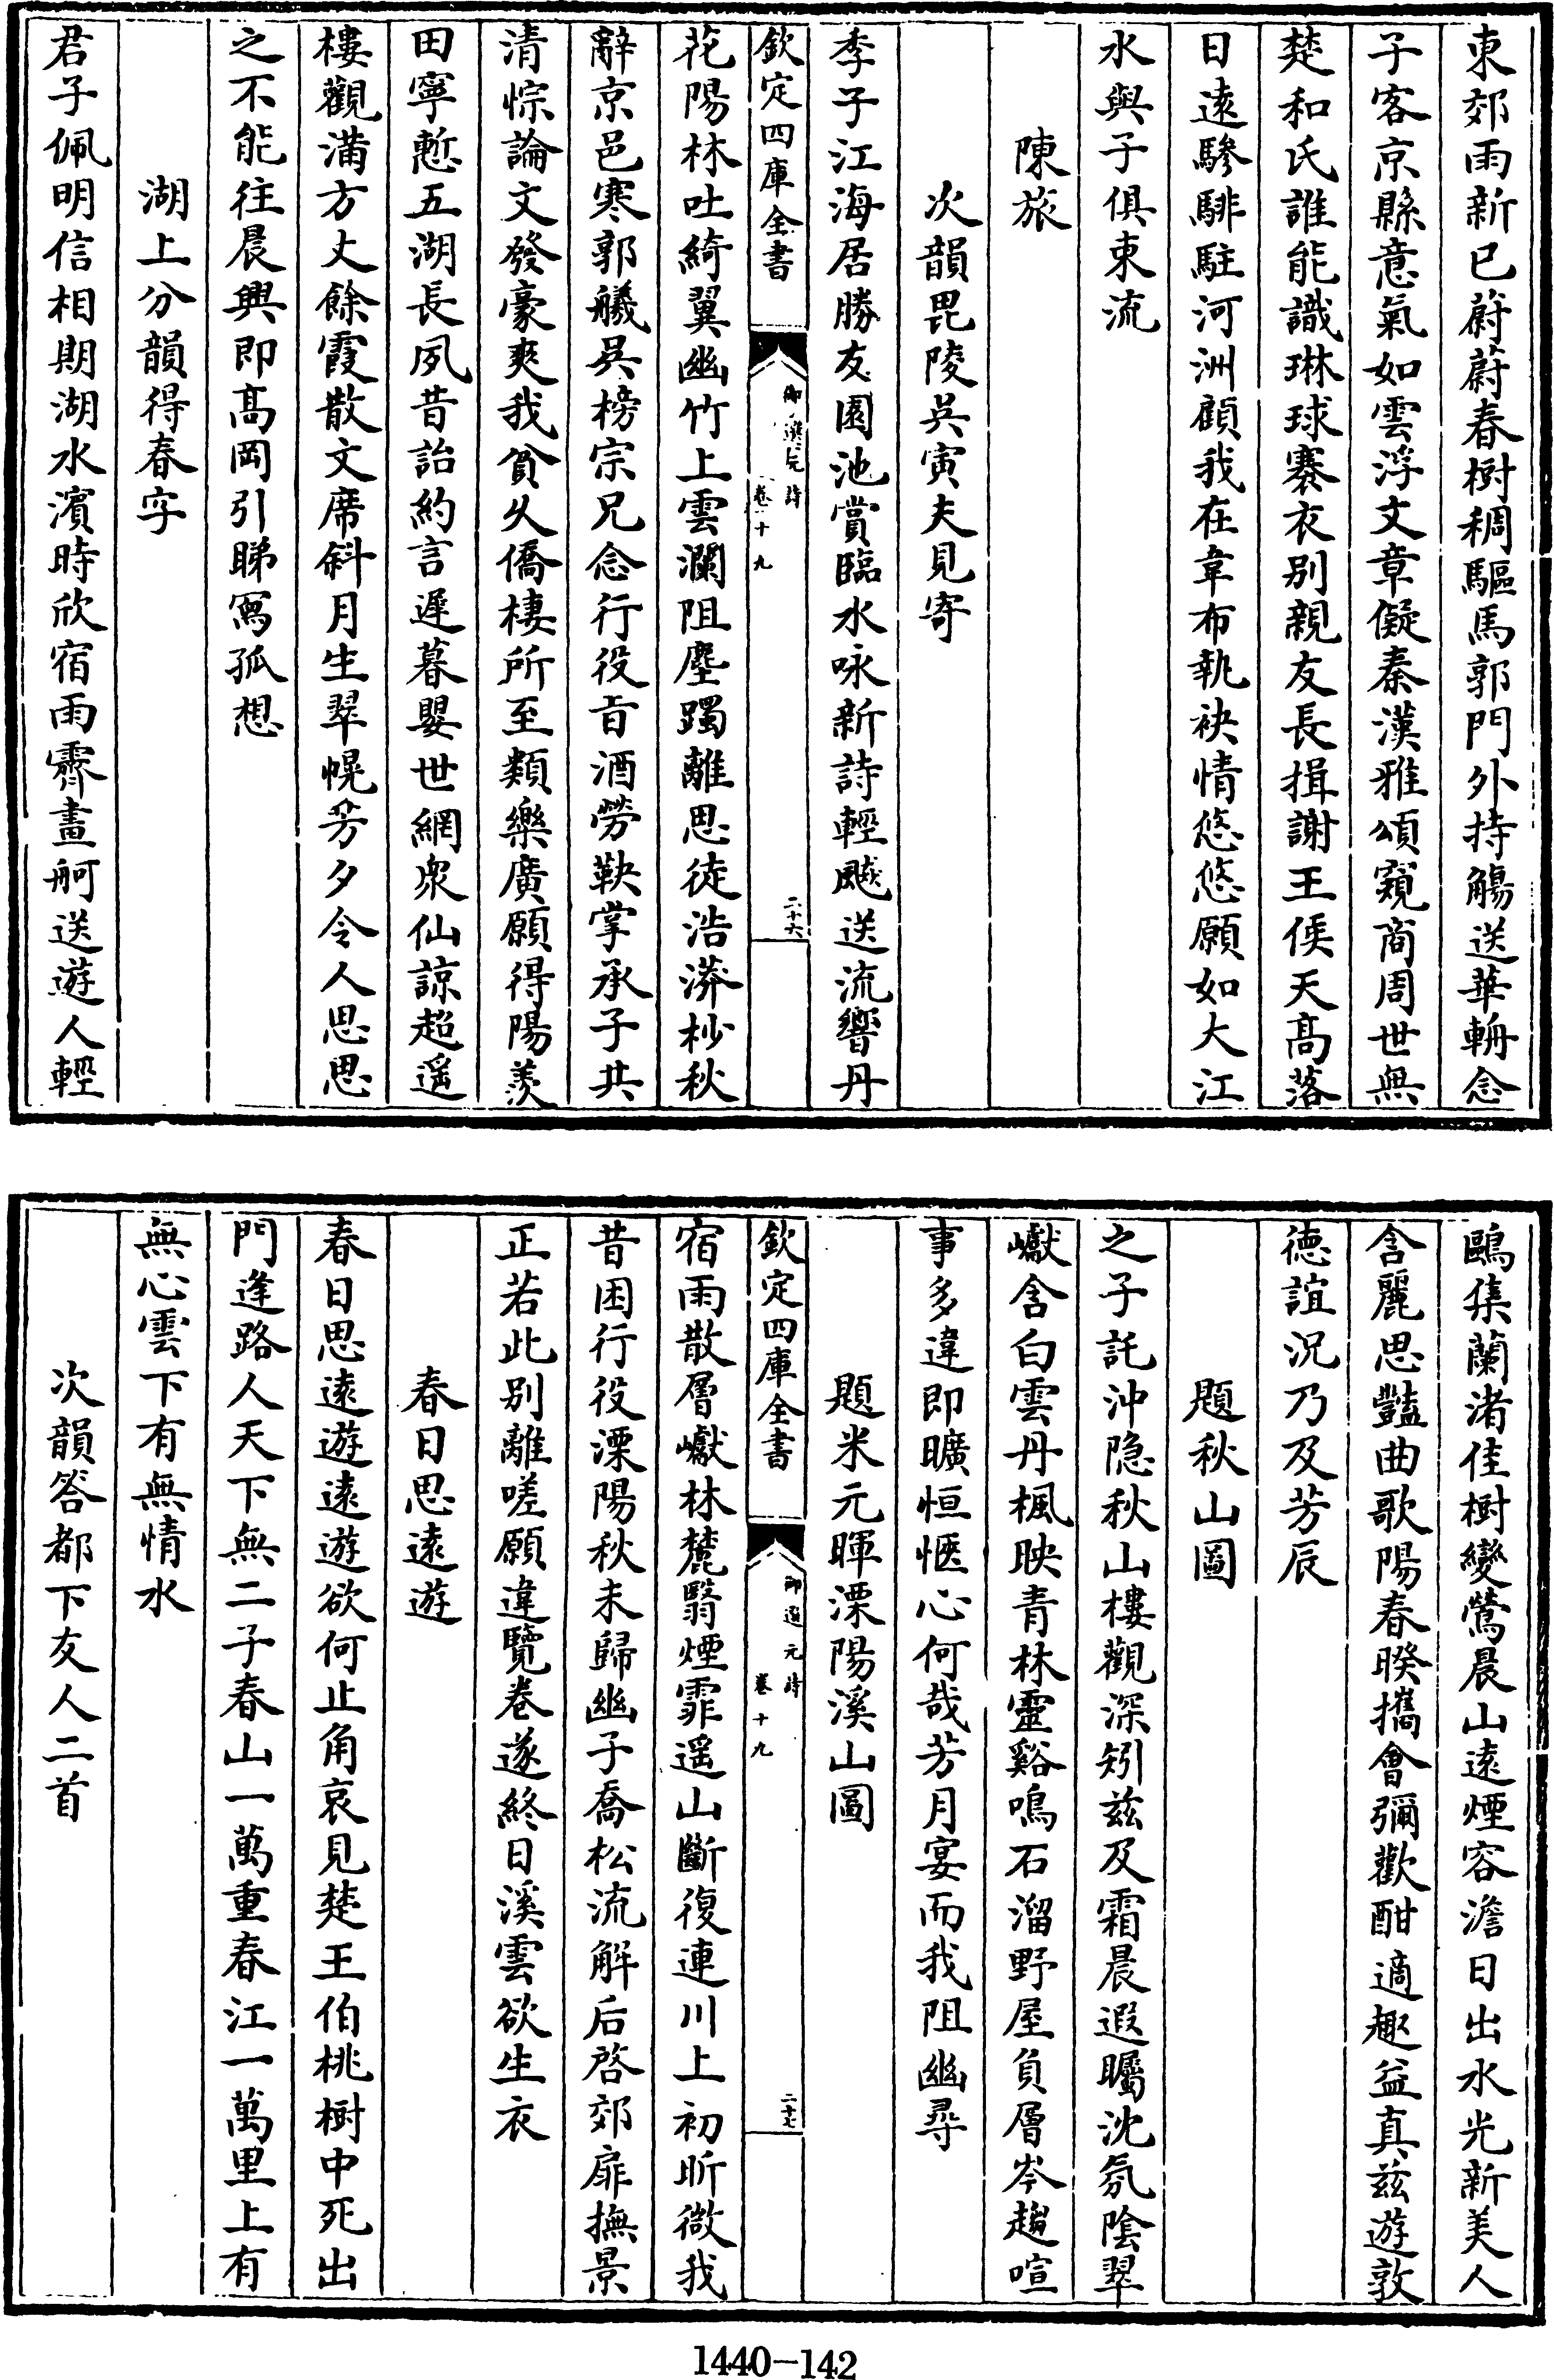 東郊雨新已蔚蔚春樹稠驅馬郭門外持觴送華輈念
子客京縣意氣如雲浮文章儗秦漢雅頌窺商周世無
楚和氏誰能識琳球褰衣别親友長揖謝王侯天髙落
日逺驂騑駐河洲顧我在韋布執袂情悠悠願如大江
水與子俱東流
陳旅
次韻毘陵吳寅夫見寄
季子江海居勝友園池賞臨水咏新詩輕飈送流響丹
欽定四庫全書
御選元詩
卷十九
二十六
花陽林吐綺翼幽竹上雲瀾阻塵躅離思徒浩漭杪秋
辭京邑寒郭艤吳榜宗兄念行役㫖酒勞鞅掌承子共
清悰論文發豪爽我貧久僑棲所至類樂廣願得陽羨
田寧慙五湖長夙昔詒約言遲暮嬰世網衆仙諒超遥
樓觀滿方丈餘霞散文席斜月生翠幌芳夕令人思思
之不能徃晨興即髙岡引睇寫孤想
湖上分韻得春字
君子佩明信相期湖水濱時欣宿雨霽畫舸送遊人輕
鷗集蘭渚佳樹變鶯晨山逺煙容澹日出水光新美人
含麗思豔曲歌陽春暌攜會彌歡酣適趣益真兹遊敦
徳誼況乃及芳辰
題秋山圖
之子託沖隐秋山樓觀深矧兹及霜晨遐矚沈氛陰翠
巘含白雲丹楓映青林靈谿鳴石溜野屋負層岑趨喧
事多違即曠恒愜心何哉芳月宴而我阻幽尋
題米元暉溧陽溪山圖
欽定四庫全書
御選元詩
卷十九
二十七
宿雨散層巘林麓翳煙霏遥山斷復連川上初昕微我
昔困行役溧陽秋未歸幽子喬松流解后啓郊扉撫景
正若此别離嗟願違覽卷遂終日溪雲欲生衣
春日思逺遊
春日思逺遊逺遊欲何止角哀見楚王伯桃樹中死出
門逢路人天下無二子春山一萬重春江一萬里上有
無心雲下有無情水
次韻答都下友人二首
1440-142